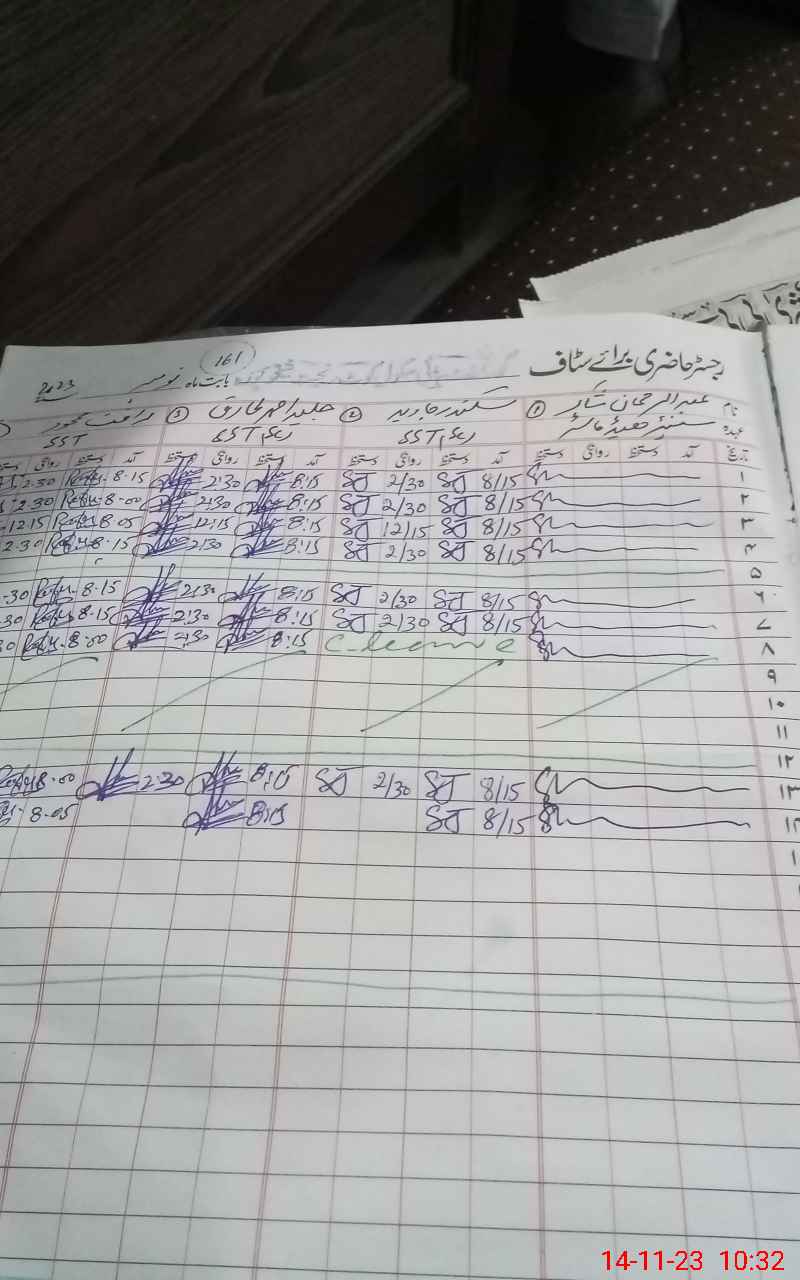 رجسٹر حاضری برائے سٹاف
161 بابت ماہ نومبر 2023
نام عبدالرحمان شاکر ① سکندر جاوید ② ③
عہدہ سینئر ہیڈ ماسٹر SST SST SST
تاریخ آمد دستخط روانگی دستخط آمد دستخط روانگی دستخط آمد دستخط روانگی دستخط آمد روانگی
۱ 8/15 SJ 2/30 SJ 8:15 2:30 8-15 2-30
۲ 8/15 SJ 2/30 SJ 8:15 2:30 8-00 2-30
۳ 8/15 SJ 12/15 SJ 8:15 12:15 8-05 12-15
۴ 8/15 SJ 2/30 SJ 8:15 2:30 8-15 2-30
۵
۶ 8/15 SJ 2/30 SJ 8:15 2:30 8-15 -30
۷ 8/15 SJ 2/30 SJ 8:15 2:30 8-15 30
۸ C-leave 8:15 2:30 8-00 30
۹
۱۰
۱۱
۱۲
۱۳ 8/15 SJ 2/30 SJ 8:15 2:30 8-00
8/15 SJ 8:15 8-05
14-11-23 10:32